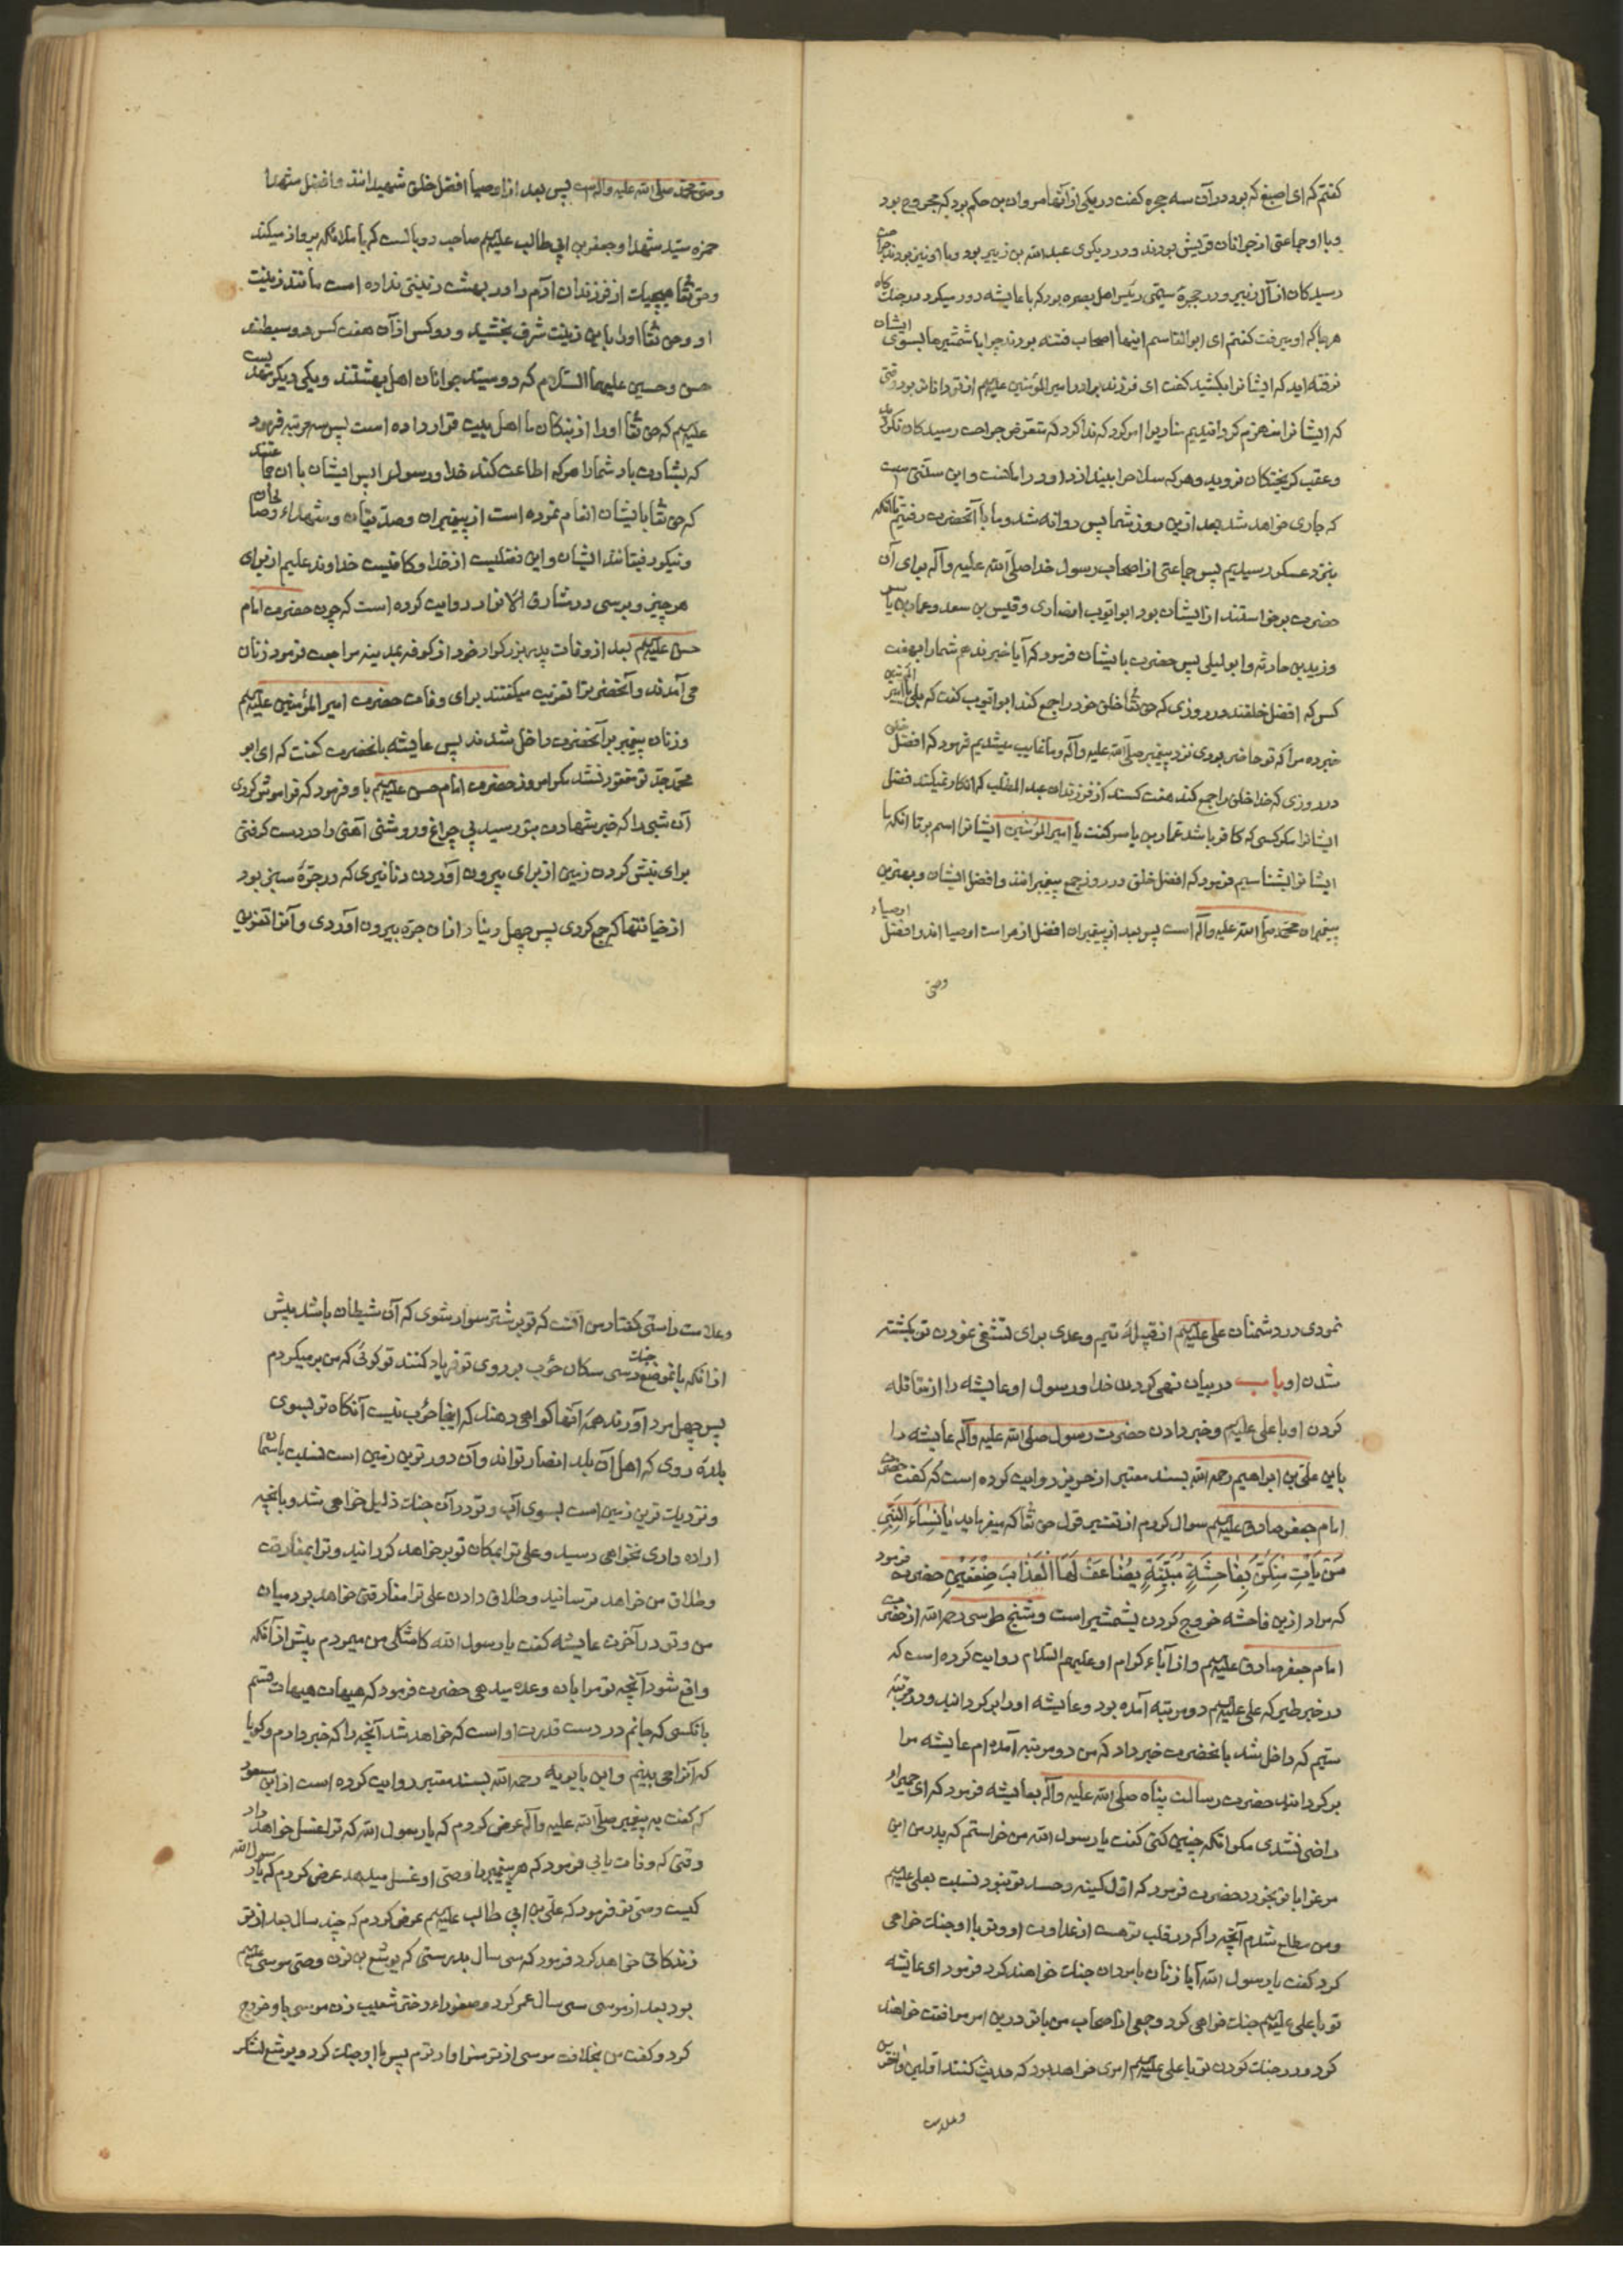 کفتم که ای اصبغ که بود در آن سه حجره کفت در یکی از آنها مروان بن حکم بود که مجروح بود
و با او جماعتی از جوانان قریش بودند و در دیکری عبد الله بن زبیر بود و با او نیز بودند جراحت
رسیدکان از آل زبیر و در حجرهٔ سیمی رئیس اهل بصره بود که با عایشه دور میکرد در جنک کاه
هر جا که او میرفت کفتم ای ابو القاسم اینها اصحاب فتنه بودند چرا با شمشیرها بسوی ایشان
نرفته اید که ایشانرا بکشید کفت ای فرزند برادر امیر المؤمنین علیه السلم از تو داناتر بود وقتی
که ایشانرا منهزم کردانیدیم منادیرا امر کرد که ندا کرد که متعرض جراحت رسیدکان نکردید
و عقب کریختکان نروید و هر که سلاح را بیندازد او در امانست و این سنتی است
که جاری خواهد شد بعد ازین روز شما پس روانه شد و ما با آنحضرت رفتیم تا انکه
بنزد عسکر رسیدیم پس جماعتی از اصحاب رسول خدا صلی الله علیه و آله برای آن
حضرت برخواستند از ایشان بود ابو ایوب انصاری و قیس بن سعد و عمار بن یاسر
و زید بن حارثه و ابو لیلی پس حضرت بایشان فرمود که آیا خبر ندهم شما را بهفت
کس که افضل خلقند در روزی که حق تعا خلق خود را جمع کند ابو ایوب کفت که بلی یا امیر المؤمنین
خبر ده مرا که تو حاضر بودی نزد پیغمبر صلی الله علیه و آله و ما غایب میشدیم فرمود که افضل خلق
در روزی که خدا خلق را جمع کند هفت کسند از فرزندان عبد المطلب که انکار نمیکند فضل
ایشانرا مکر کسی که کافر باشد عمار بن یاسر کفت یا امیر المؤمنین ایشانرا اسم بر تا انکه ما
ایشانرا بشناسیم فرمود که افضل خلق در روز جمع پیغمبرانند و افضل ایشان و بهترین
پیغمبران محمد صلی الله علیه و آله است پس بعد از پیغمبران افضل از هر امت اوصیا اند و افضل اوصیاء
وصی
وصی محمد صلی الله علیه و آله است پس بعد از اوصیا افضل خلق شهیدانند و افضل شهدا
حمزه سید شهدا و جعفر بن ابی طالب علیه السلم صاحب دو بالست که با ملائکه پرواز میکند
و حق تعا هیچیک از فرزندان آدم را در بهشت زینتی نداده است مانند زینت
او و حق تعا او را باین زینت شرف بخشید و دو کس از آن هفت کس دو سبطند
حسن و حسین علیهما السلام که دو سید جوانان اهل بهشتند و یکی دیکر مهدیست
علیه السلم که حق تعا او را از نیکان ما اهل بیت قرار داده است پس سه مرتبه فرمود
که بشارت باد شما را هر که اطاعت کند خدا و رسول را پس ایشان با آن جماعتند
که حق تعا بایشان انعام نموده است از پیغمبران و صدیقان و شهداء و صالحان
و نیکو رفیقانند ایشان و این فضلیست از خدا و کافیست خداوند علیم از برای
هر چیز و برسی در مشارق الانوار روایت کرده است که چون حضرت امام
حسن علیه السلم بعد از وفات پدر بزرکوار خود از کوفه بمدینه مراجعت فرمود زنان
می آمدند و آنحضرترا تعزیت میکفتند برای وفات حضرت امیر المؤمنین علیه السلم
و زنان پیغمبر بر آنحضرت داخل شدند پس عایشه بانحضرت کفت که ای ابو
محمد جد تو مفقود نشد مکر امروز حضرت امام حسن علیه السلم باو فرمود که فراموش کردی
آن شبی را که خبر شهادت بتو رسید بی چراغ و روشنی آهنی را در دست کرفتی
برای نبش کردن زمین از برای بیرون آوردن دنانیری که در جرهٔ سبز بود
از خیانتها که جمع کردی پس چهل دینار از آن جره بیرون آوردی و آنرا تفریق
نمودی در دشمنان علی علیه السلم از قبیلهٔ تیم و عدی برای تشفی نمودن تو بکشته
شدن او باب در بیان نهی کردن خدا و رسول او عایشه را از مقاتله
کردن او با علی علیه السلم و خبر دادن حضرت رسول صلی الله علیه و آله عایشه را
باین علی بن ابراهیم رحمه الله بسند معتبر از حریز روایت کرده است که کفت حضرت
امام جعفر صادق علیه السلم سوال کردم از تفسیر قول حق تعا که میفرماید یا نساء النبی
من یأت منکن بفاحشة مبینة یضاعف لها العذاب ضعفین حضرت فرمود
که مراد ازین فاحشه خروج کردن بشمشیر است و شیخ طوسی رحمه الله از حضرت
امام جعفر صادق علیه السلم و از آباء کرام او علیهم السلام روایت کرده است که
در خبر طیر که علی علیه السلم دو مرتبه آمده بود و عایشه او را بر کردانید و در مرتبه
سیم که داخل شد بانحضرت خبر داد که من دو مرتبه آمده ام عایشه مرا
بر کردانید حضرت رسالت پناه صلی الله علیه و آله بعایشه فرمود که ای حمیراء
راضی نشدی مکر انکه چنین کنی کفت یا رسول الله من خواستم که پدر من این
مرغ را با تو بخورد حضرت فرمود که اول کینه و حسد تو نبود نسبت بعلی علیه السلم
و من مطلع شدم آنچه را که در قلب تو هست از عداوت او و تو با او جنک خواهی
کرد کفت یا رسول الله آیا زنان با مردان جنک خواهند کرد فرمود ای عایشه
تو با علی علیه السلم جنک خواهی کرد و جمعی از اصحاب من با تو درین امر موافقت خواهند
کرد و در جنک کردن تو با علی علیه السلم امری خواهد بود که حدیث کنند اولین و آخرین
و علامت
و علامت راستی کفتار من آنست که تو بر شتر سوار شوی که آن شیطان باشد پیش
از انکه بانموضع جنک رسی سکان حوب بر روی تو فریاد کنند تو کوئی که من بر میکردم
پس چهل مرد آورند همه آنها کواهی دهند که اینجا حوب نیست آنکاه تو بسوی
بلدهٔ روی که اهل آن بلد انصار تواند و آن دورترین زمین است نسبت باسمان
و نزدیک ترین زمین است بسوی آب و تو در آن جنک ذلیل خواهی شد و بانچه
اراده داری نخواهی رسید و علی ترا بمکان تو بر خواهد کردانید و ترا بمفارقت
و طلاق من خواهد ترسانید و طلاق دادن علی ترا مفارقتی خواهد بود میان
من و تو در آخرت عایشه کفت یا رسول الله کاشکی من میمردم پیش از انکه
واقع شود آنچه تو مرا بان وعده میدهی حضرت فرمود که هیهات هیهات قسم
بانکسی که جانم در دست قدرت او است که خواهد شد آنچه را که خبر دادم و کویا
که آنرا می بینم و ابن بابویه رحمه الله بسند معتبر روایت کرده است از ابن مسعود
که کفت به پیغمبر صلی الله علیه و آله عرض کردم که یا رسول الله که ترا غسل خواهد داد
وقتی که وفات یابی فرمود که هر پیغمبر را وصی او غسل میدهد عرض کردم که یا رسول الله
کیست وصی تو فرمود که علی بن ابی طالب علیه السلم عرض کردم که چند سال بعد از تو
زندکانی خواهد کرد فرمود که سی سال بدرستی که یوشع بن نون وصی موسی علیه السلم
بود بعد از موسی سی سال عمر کرد و صفوراء دختر شعیب زن موسی باو خروج
کرد و کفت من بخلافت موسی از تو سزاوارترم پس با او جنک کرد و یوشع لشکر